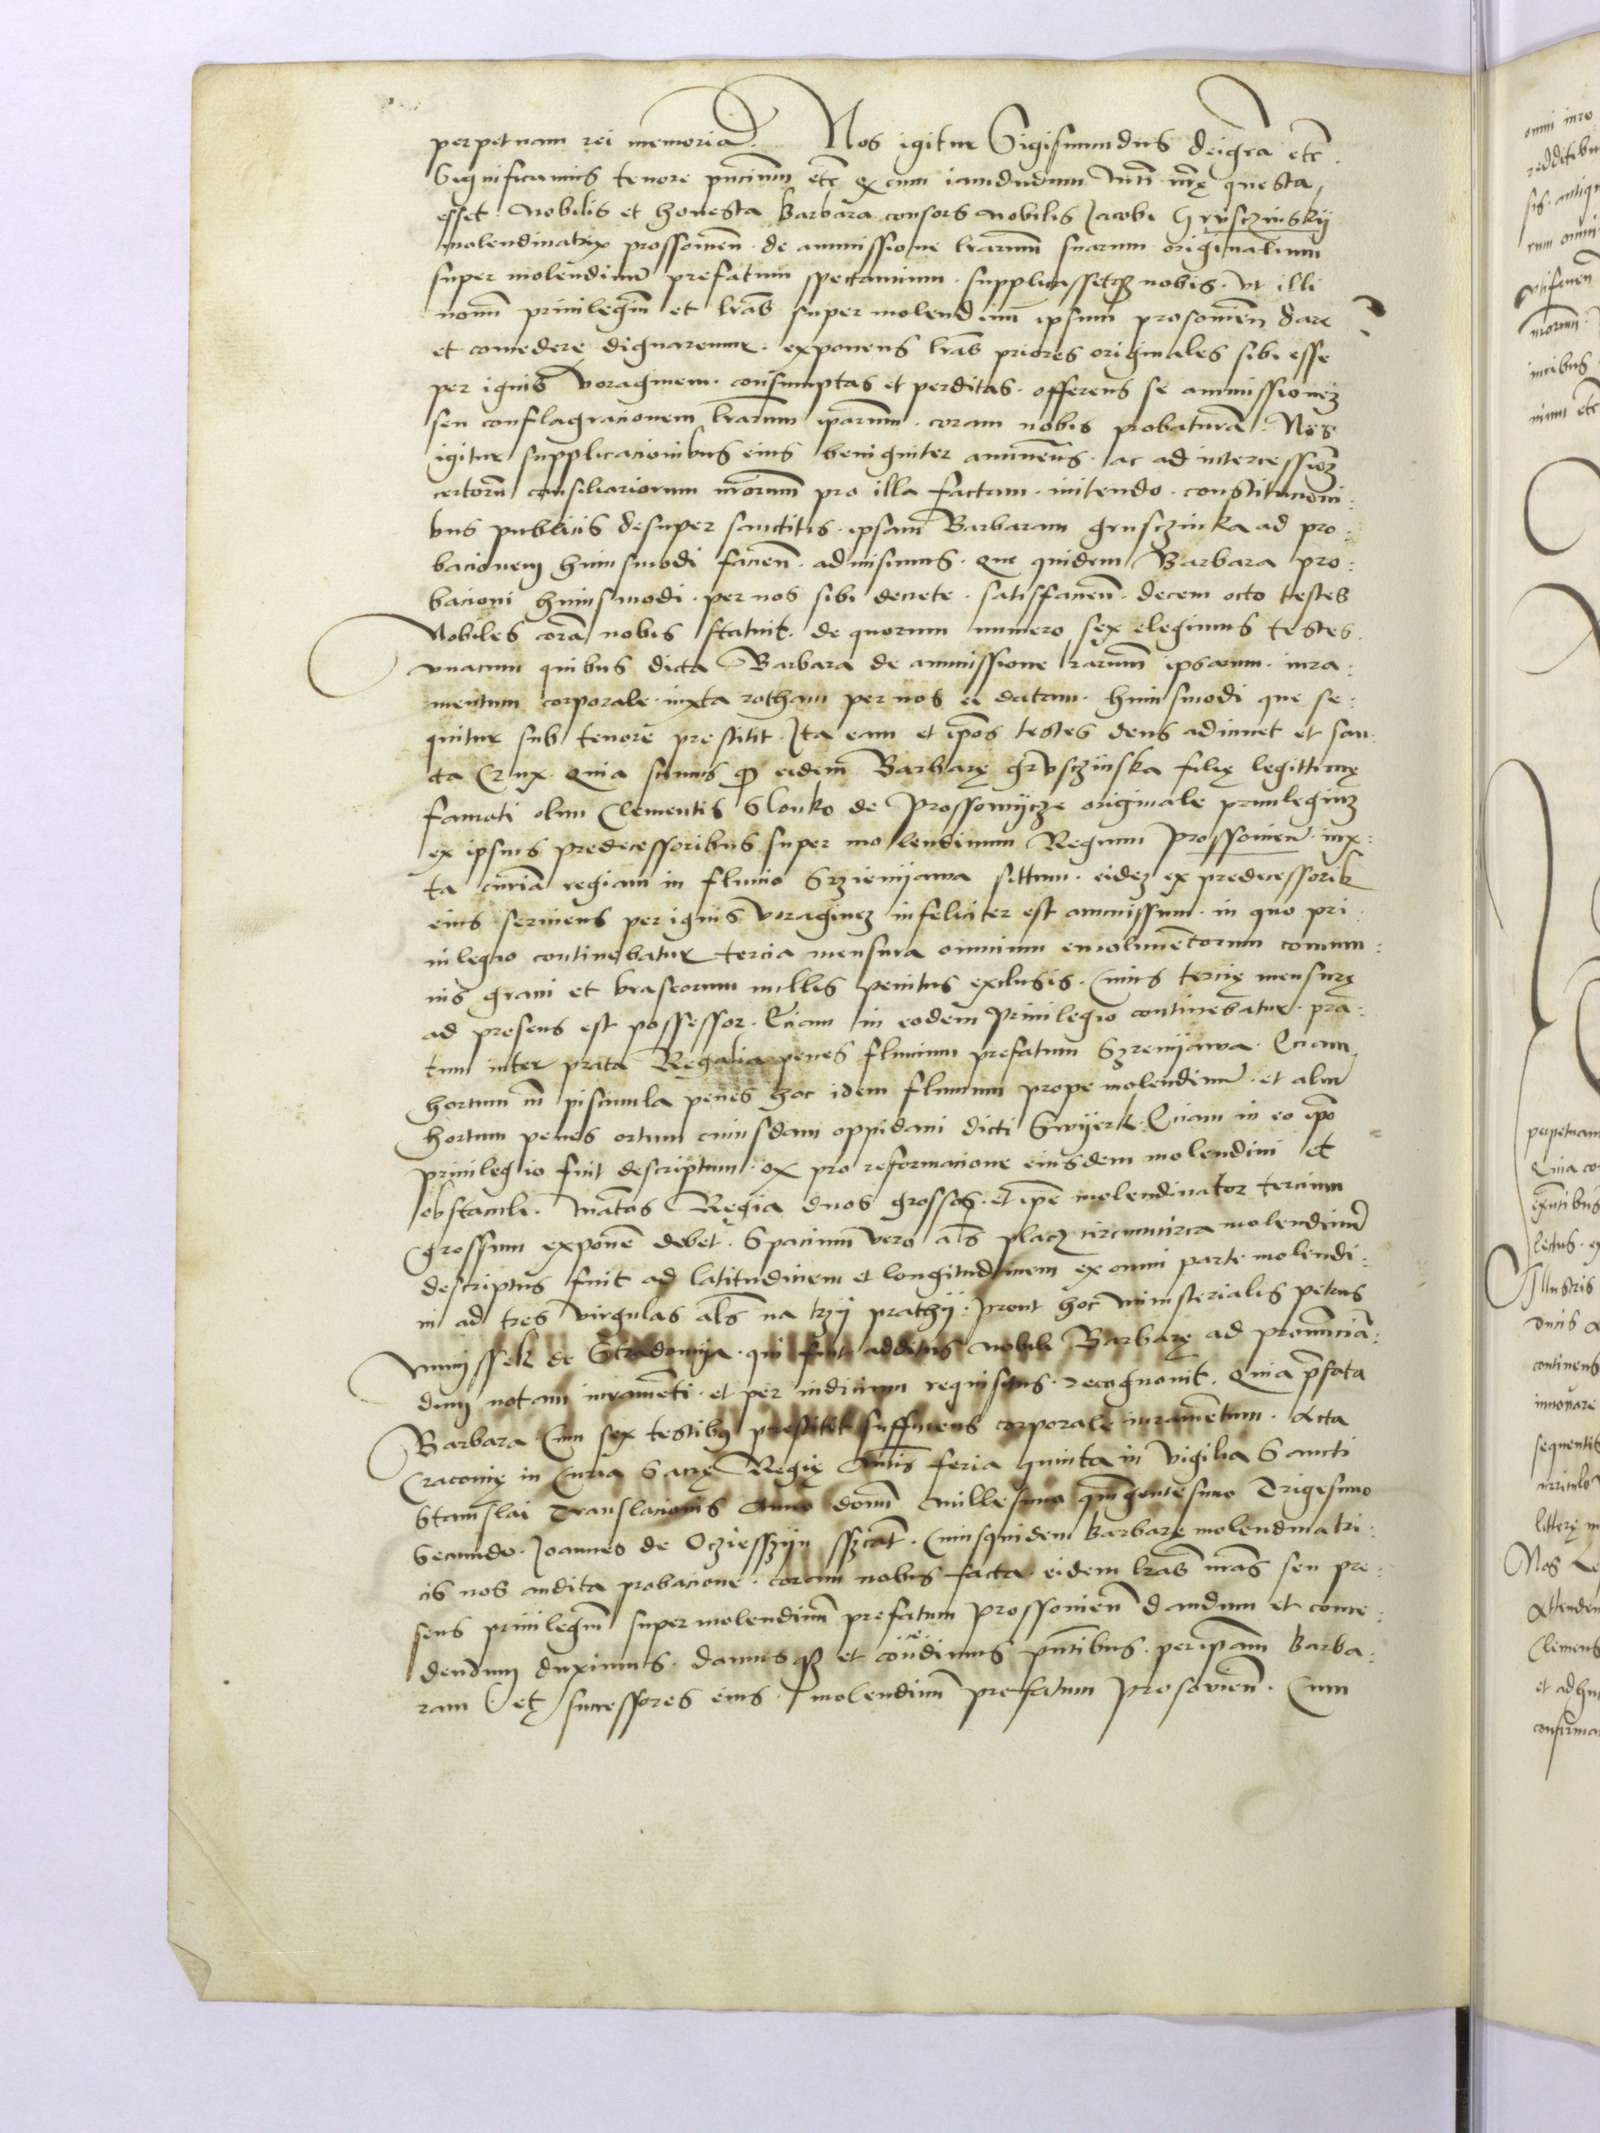 perpetuam rei memoriā. Nos igitur Sigismundus deigrā etc̄.
Significamus tenore pn̄cium etc̄ Q cum iamdudum mti nr̄ę questa
esset nobilis et honesta Barbara consors nobilis Jacobi Gruscziński
molendinatrix prossouien̄. de ammissione lrarum̄ suarum originalium
super molendinū prefatum spectancium. supplicassetq3 nobis. vt illi
nouū priuilegiū et lras̄ super molendinum ipsum prosouien̄ dare
et concedere dignaremur. exponens lras̄ priores originales sibi esse
per ignis voraginem. consumptas et perditas. offerens se ammissionez
seu conflagracionem lrarum̄ ip̄arum̄. coram nobis probaturā. Nos
igitur supplicacionibus eius benigniter annuen̄s. ac ad intercessionē
certorū consiliariorum nr̄orum̄ pro illa factam. initendo. constitucioni:
bus publicis desuper sanctitis. ipsam Barbaram grusczinska ad pro:
bacionem huiusmodi facien̄. admisimus. que quidem Barbara pro:
bacioni huiusmodi. per nos sibi decrete. satisfacien̄. decem octo testes
Nobiles corā nobis statuit. de quorum numero sex elegimus testes.
vnacum quibus dicta Barbara de ammissione lrarum̄ ipsarum. iura:
mentum corporale. iuxta rotham per nos ei datam. huiusmodi que se:
quitur sub tenore prestitit. Ita eam et ip̄os testes deus adiuuet et san:
cta Crux. Quia sumus ꝙ eidem Barbarę grvsczinska filię legittimę
famati olim Clementis Slonko de Prossowijcze originale priuilegiuz
ex ipsius predecessoribus super molendinum Regium Prossouien̄. iux:
ta curiā regiam in fluuio Srzenijawa sittum. eidez ex predecessorib
eius seruiens per ignis voraginez infeliciter est ammissum. in quo pri:
uilegio continebatur tercia mensura omnium emolumentorum commu:
nis grani et braseorum nullis penitus exclusis. Cuius tercię mensurę
ad presens est possessor. Eciam in eodem Priuilegio continebatur. pra:
tum inter prata Regalia penes fluuium prefatum Szrenijawa. Eciam
hortum in̄ piscinula penes hoc idem fluuium prope molendinū. et aliū
hortum penes ortum cuiusdam oppidani dicti Swijerk. Eciam in eo ip̄o
priuilegio fuit descriptum. Q pro reformacione eiusdem molendini et
obstaculi. Mat̄as Regia duos grossos. et ip̄e molendinator tercium
grossum expone debet. Spacium vero als̄ placz circumcirca molendinū
descriptus fuit ad latitudinem et longitudinem ex omni parte molendi:
ni ad tres virgulas als̄ na trzij prathij. prout hoc ministerialis petrus
de Stradomija. qui fuit additus nobili Barbarę ad pronuncian̄:
dum notam iuramēti. et per iudicium requisitus. recognouit. Quia p̄fata
Barbara Cum sex testibus prestitit sufficiens corporale iuramentum. Acta
Cracouię in Curia Sacrę Regię feria quinta in vigilia Sancti
Stanislai Translacionis Anno domī Millesimo quingentesimo Trigesimo
Secundo. Joannes de Oczieszijn sszcat̄. Cuiusquidem Barbarę molendinatri:
cis nos audita probacione. coram nobis facta. eidem lras̄ nr̄as̄ seu pre:
sens priuilegiū super molendinū prefatum Prossouien̄ dandum et conce:
dendum duximus. damusq3 et concedimus pn̄tibus. per ip̄am Barba:
ram et successores eius. molendinū prefatum prosouien̄. Cum